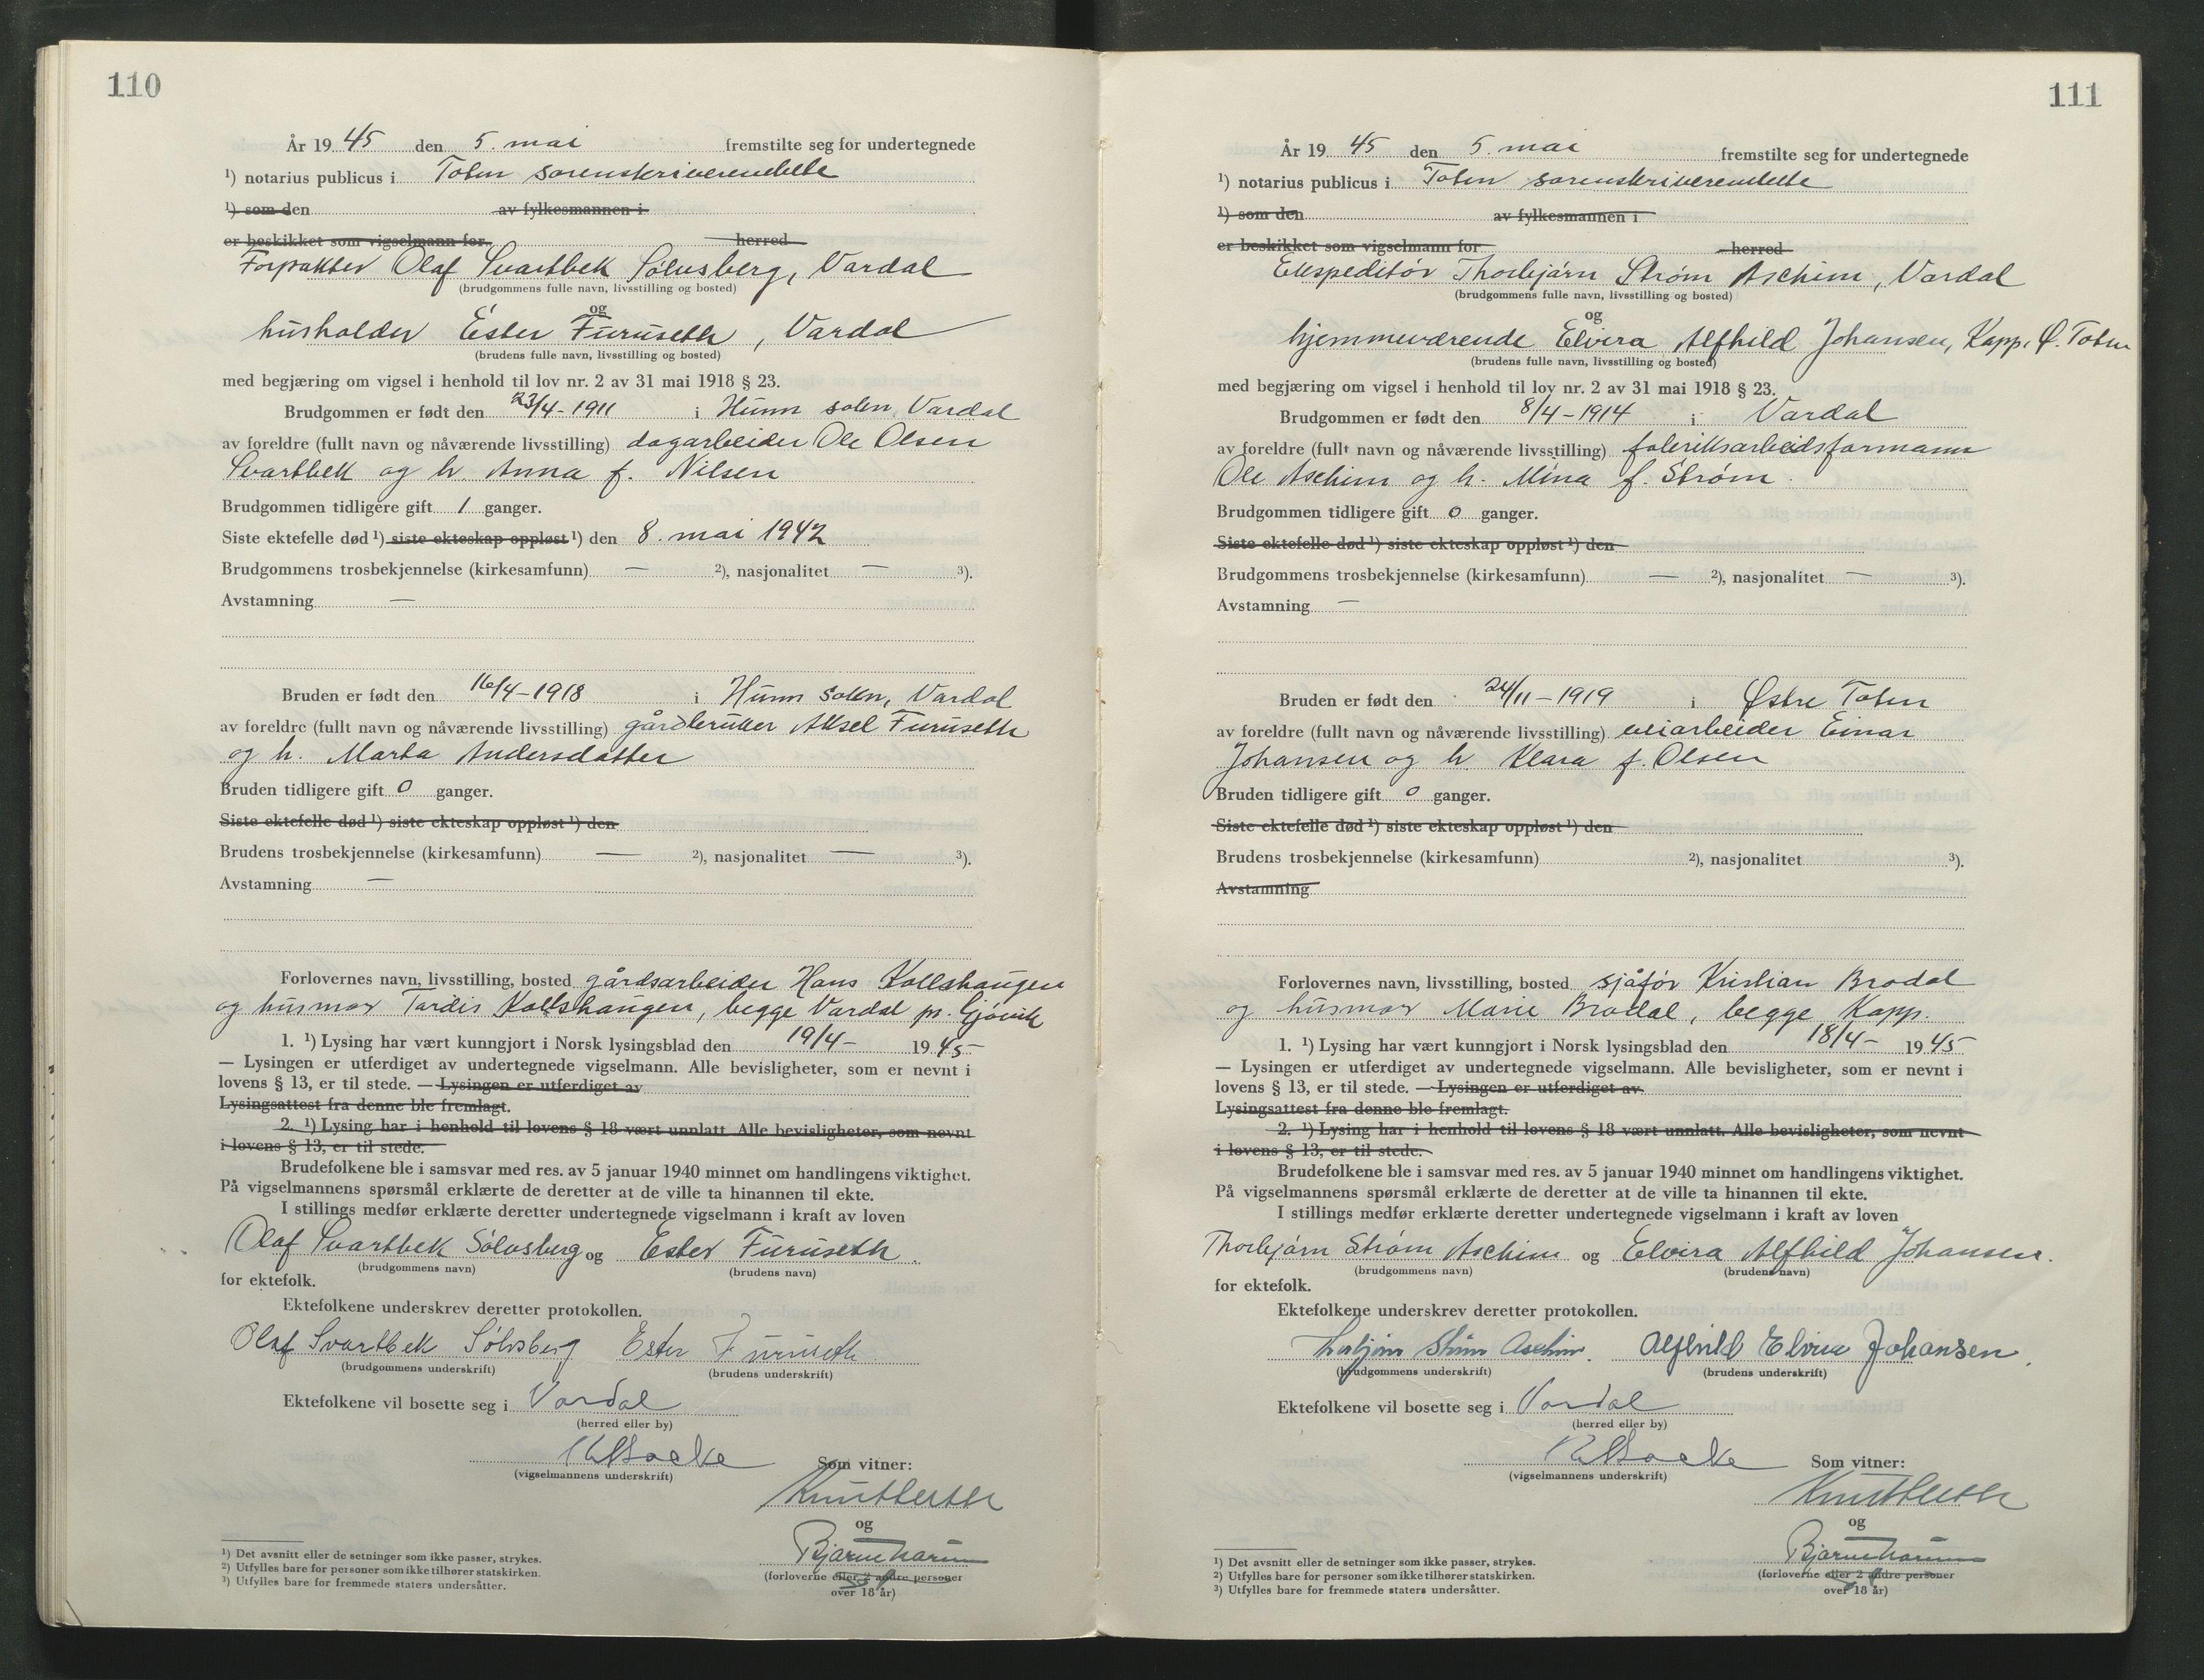 110
År 1945 den 5. mai fremstilte seg for undertegnede
¹) notarius publicus i Toten sorenskriverembete
¹) som den av fylkesmannen i
er beskikket som vigselmann for herred
Forpakter Olaf Svartbek Sølvsberg, Vardal
(brudgommens fulle navn, livsstilling og bosted)
og
husholder Ester Furuseth, Vardal
(brudens fulle navn, livsstilling og bosted)
med begjæring om vigsel i henhold til lov nr. 2 av 31 mai 1918 § 23.
Brudgommen er født den 23/4-1911 i Hunn sokn, Vardal
av foreldre (fullt navn og nåværende livsstilling) dagarbeider Ole Olsen
Svartbek og h. Anna f. Nilsen
Brudgommen tidligere gift 1 ganger.
Siste ektefelle død ¹) siste ekteskap oppløst ¹) den 8. mai 1942
Brudgommens trosbekjennelse (kirkesamfunn) — ²), nasjonalitet — ³).
Avstamning —
Bruden er født den 16/4-1918 i Hunn sokn, Vardal
av foreldre (fullt navn og nåværende livsstilling) gårdbruker Aksel Furuseth
og h. Marta Andersdatter
Bruden tidligere gift 0 ganger.
Siste ektefelle død ¹) siste ekteskap oppløst ¹) den
Brudens trosbekjennelse (kirkesamfunn) — ²), nasjonalitet — ³).
Avstamning —
Forlovernes navn, livsstilling, bosted gårdsarbeider Hans Kollshaugen
og husmor Tordis Kollshaugen, begge Vardal pr. Gjøvik
1. ¹) Lysing har vært kunngjort i Norsk lysingsblad den 19/4- 1945
— Lysingen er utferdiget av undertegnede vigselmann. Alle bevisligheter, som er nevnt i
lovens § 13, er til stede. — Lysingen er utferdiget av
Lysingsattest fra denne ble fremlagt.
2. ¹) Lysing har i henhold til lovens § 18 vært unnlatt. Alle bevisligheter, som nevnt
i lovens § 13, er til stede.
Brudefolkene ble i samsvar med res. av 5 januar 1940 minnet om handlingens viktighet.
På vigselmannens spørsmål erklærte de deretter at de ville ta hinannen til ekte.
I stillings medfør erklærte deretter undertegnede vigselmann i kraft av loven
Olaf Svartbek Sølvsberg og Ester Furuseth.
(brudgommens navn) (brudens navn)
for ektefolk.
Ektefolkene underskrev deretter protokollen.
Olaf Svartbek Sølvsberg Ester Furuseth
(brudgommens underskrift) (brudens underskrift)
Ektefolkene vil bosette seg i Vardal
(herred eller by)
Som vitner:
(vigselmannens underskrift)
og
(forloverne eller 2 andre personer
over 18 år)
¹) Det avsnitt eller de setninger som ikke passer, strykes.
²) Utfylles bare for personer som ikke tilhører statskirken.
³) Utfylles bare for fremmede staters undersåtter.
111
År 1945 den 5. mai fremstilte seg for undertegnede
¹) notarius publicus i Toten sorenskriverembete
¹) som den av fylkesmannen i
er beskikket som vigselmann for herred
Ekspeditør Thorbjørn Strøm Aschim, Vardal
(brudgommens fulle navn, livsstilling og bosted)
og
hjemmeværende Elvira Alfhild Johansen, Kapp, Ø. Toten
(brudens fulle navn, livsstilling og bosted)
med begjæring om vigsel i henhold til lov nr. 2 av 31 mai 1918 § 23.
Brudgommen er født den 8/4-1914 i Vardal
av foreldre (fullt navn og nåværende livsstilling) fabrikksarbeidsformann
Ole Aschim og h. Mina f. Strøm.
Brudgommen tidligere gift 0 ganger.
Siste ektefelle død ¹) siste ekteskap oppløst ¹) den
Brudgommens trosbekjennelse (kirkesamfunn) — ²), nasjonalitet — ³).
Avstamning —
Bruden er født den 24/11-1919 i Østre Toten
av foreldre (fullt navn og nåværende livsstilling) veiarbeider Einar
Johansen og h. Klara f. Olsen
Bruden tidligere gift 0 ganger.
Siste ektefelle død ¹) siste ekteskap oppløst ¹) den
Brudens trosbekjennelse (kirkesamfunn) ²), nasjonalitet ³).
Avstamning
Forlovernes navn, livsstilling, bosted sjåfør Kristian Brodal
og husmor Marie Brodal, begge Kapp.
1. ¹) Lysing har vært kunngjort i Norsk lysingsblad den 18/4- 1945
— Lysingen er utferdiget av undertegnede vigselmann. Alle bevisligheter, som er nevnt i
lovens § 13, er til stede. — Lysingen er utferdiget av
Lysingsattest fra denne ble fremlagt.
2. ¹) Lysing har i henhold til lovens § 18 vært unnlatt. Alle bevisligheter, som nevnt
i lovens § 13, er til stede.
Brudefolkene ble i samsvar med res. av 5 januar 1940 minnet om handlingens viktighet.
På vigselmannens spørsmål erklærte de deretter at de ville ta hinannen til ekte.
I stillings medfør erklærte deretter undertegnede vigselmann i kraft av loven
Thorbjørn Strøm Aschim og Elvira Alfhild Johansen.
(brudgommens navn) (brudens navn)
for ektefolk.
Ektefolkene underskrev deretter protokollen.
Thorbjørn Strøm Aschim. Alfhild Elvira Johansen.
(brudgommens underskrift) (brudens underskrift)
Ektefolkene vil bosette seg i Vardal
(herred eller by)
Som vitner:
(vigselmannens underskrift)
og
(forloverne eller 2 andre personer
over 18 år)
¹) Det avsnitt eller de setninger som ikke passer, strykes.
²) Utfylles bare for personer som ikke tilhører statskirken.
³) Utfylles bare for fremmede staters undersåtter.